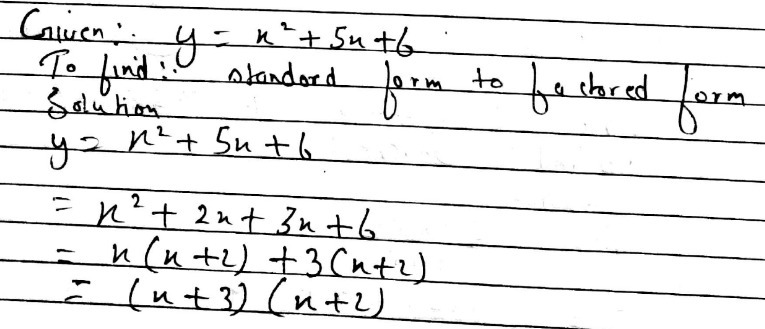 Given:. y = x² + 5x + 6
To find:. standard form to factored form
Solution
y = x² + 5x + 6
= x² + 2x + 3x + 6
= x (x + 2) + 3 (x + 2)
= (x + 3) (x + 2)